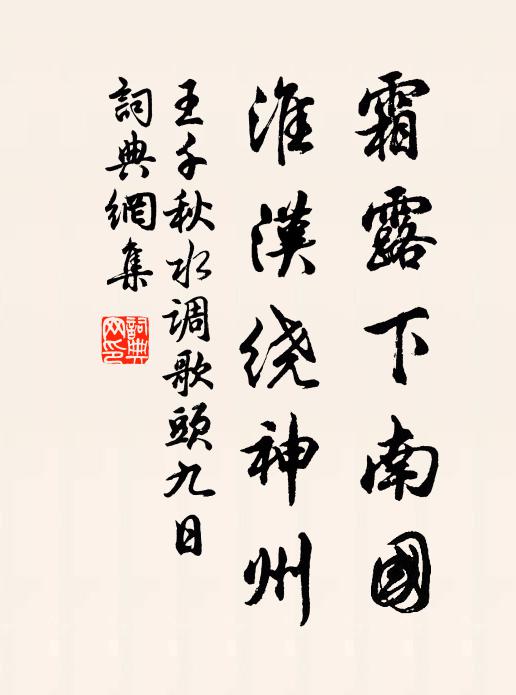 霜露下南國
淮漢绕神州
王千秋水调歌頭九日
詞典網集
詞典網印